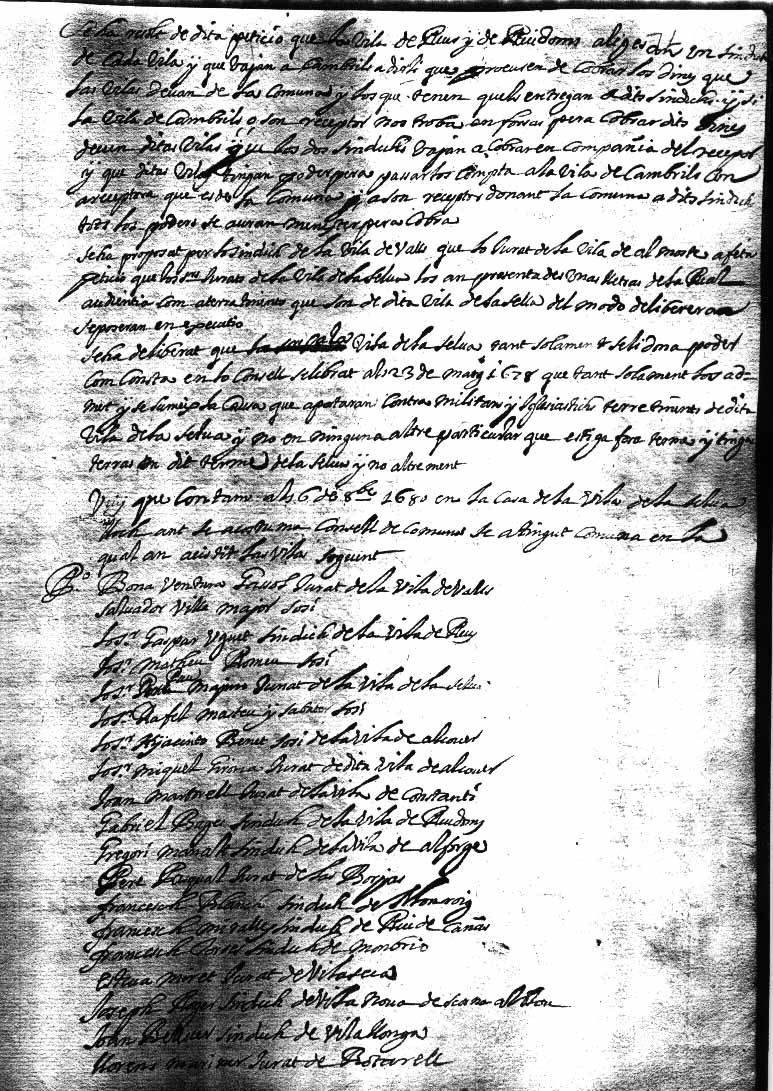 de dita peticio que las Vila de Reus y de Riudoms aligescan un sindich
de Cada Vila y que vajan a Cambrils a dirli que procuren de Cobrar los diners que
las Vilas deuan de la Comuna y los que tenen quels entregan a dits sindichs y si
la Vila de Cambrils o son receptor nos troba en forsas pera Cobrar dits diners
deuen ditas Vilas y que los dos sindichs vajan a Cobrar en Compañia del receptor
y que ditas Vilas tingan poder pera passar los Compta a la Vila de Cambrils Com
a receptora que es de la Comuna y a son receptor donant la Comuna a dits sindich
tots los poders se auran menester pera Cobra
Seha proposat per lo sindich de la Vila de Valls que lo Jurat de la Vila de al morte a feta
peticio que los Jurats de la Vila de la Selua los an presentades unas lletras de la Real
audientia Com a terratinents que son de dita Vila de la Selua del modo deliberaran
se posaran en executio
Seha deliberat que Vila de la Selua tant solament se li dona poder
Com Consta en lo Consell selebrat als 23 de maig 1678 que tant solament los ad-
met y se sumeix la Causa que aportaran Contra militars y Iglesiastichs terratinents de dita
Vila de la Selua y no en ninguna altre particular que estiga fora terme y tinga
terras en dit terme de la Selua y no altrement
Vuy que Contam als 6 de 8bre 1680 en la Casa de la Vila de la Selua
lloch ant se acostuma Consell de Comunas se a tingut Comuna en la
qual an asistit las Vilas seguent
Po Bona Ventura Jurat de la Vila de Valls
Saluador Villa major sosi
Joseph Gaspar Uguet sindich de la Vila de Reus
Matheu Romeu sosi
Pere Pau Majner Jurat de la Vila de la Selua
Rafel Mateu y Sabater sosi
Hyacinto Benet sosi de la Vila de alcouer
Miquel Jurat de dita Vila de alcouer
Joan Martorell Jurat de la Vila de Constanti
Gabriel Bages sindich de la Vila de Riudoms
Gregori sindich de la Vila de alforge
Pere Pasqual Jurat de las Borjas
francesch Blanch sindich de Monroig
francesch miralles sindich de Riu de Cañas
francesch sindich de Monbrio
Esteua moret Jurat de Vilaseca
Joseph Roger sindich de Vila Noua de scorna al Bou
Joan sindich de Vilallonga
Llorens mariner Jurat de Botarell